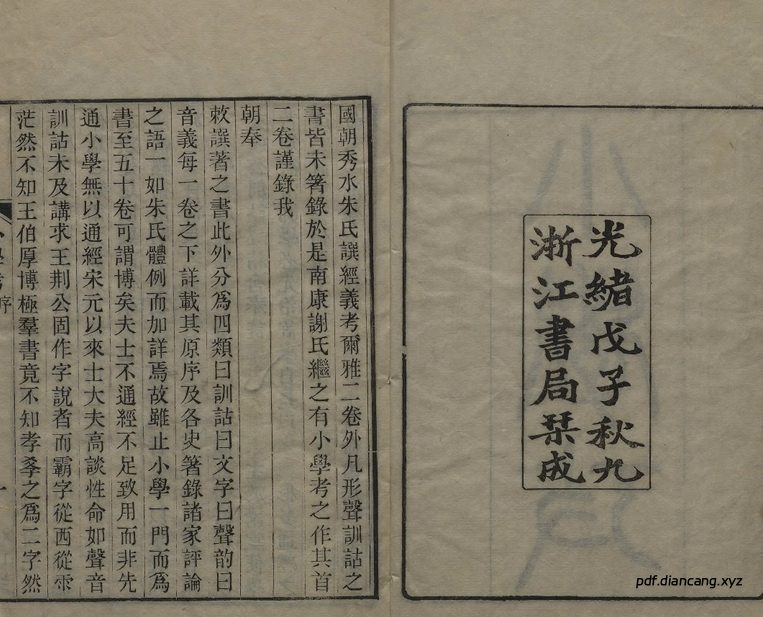 光緒戊子秋九
浙江書局栞成
國朝秀水朱氏譔經義考爾雅二卷外凡形聲訓詁之
書皆未箸錄於是南康謝氏繼之有小學考之作其首
二卷謹錄我
朝奉
敕譔著之書此外分爲四類曰訓詁曰文字曰聲韵曰
音義每一卷之下詳載其原序及各史箸錄諸家評論
之語一如朱氏體例而加詳焉故雖止小學一門而爲
書至五十卷可謂博矣夫士不通經不足致用而非先
通小學無以通經宋元以來士大夫高談性命如聲音
訓詁未及講求王荆公固作字說者而霸字從西從雫
茫然不知王伯厚博極羣書竟不知孝𡥉之爲二字然
小學考序
一
pdf.diancang.xyz